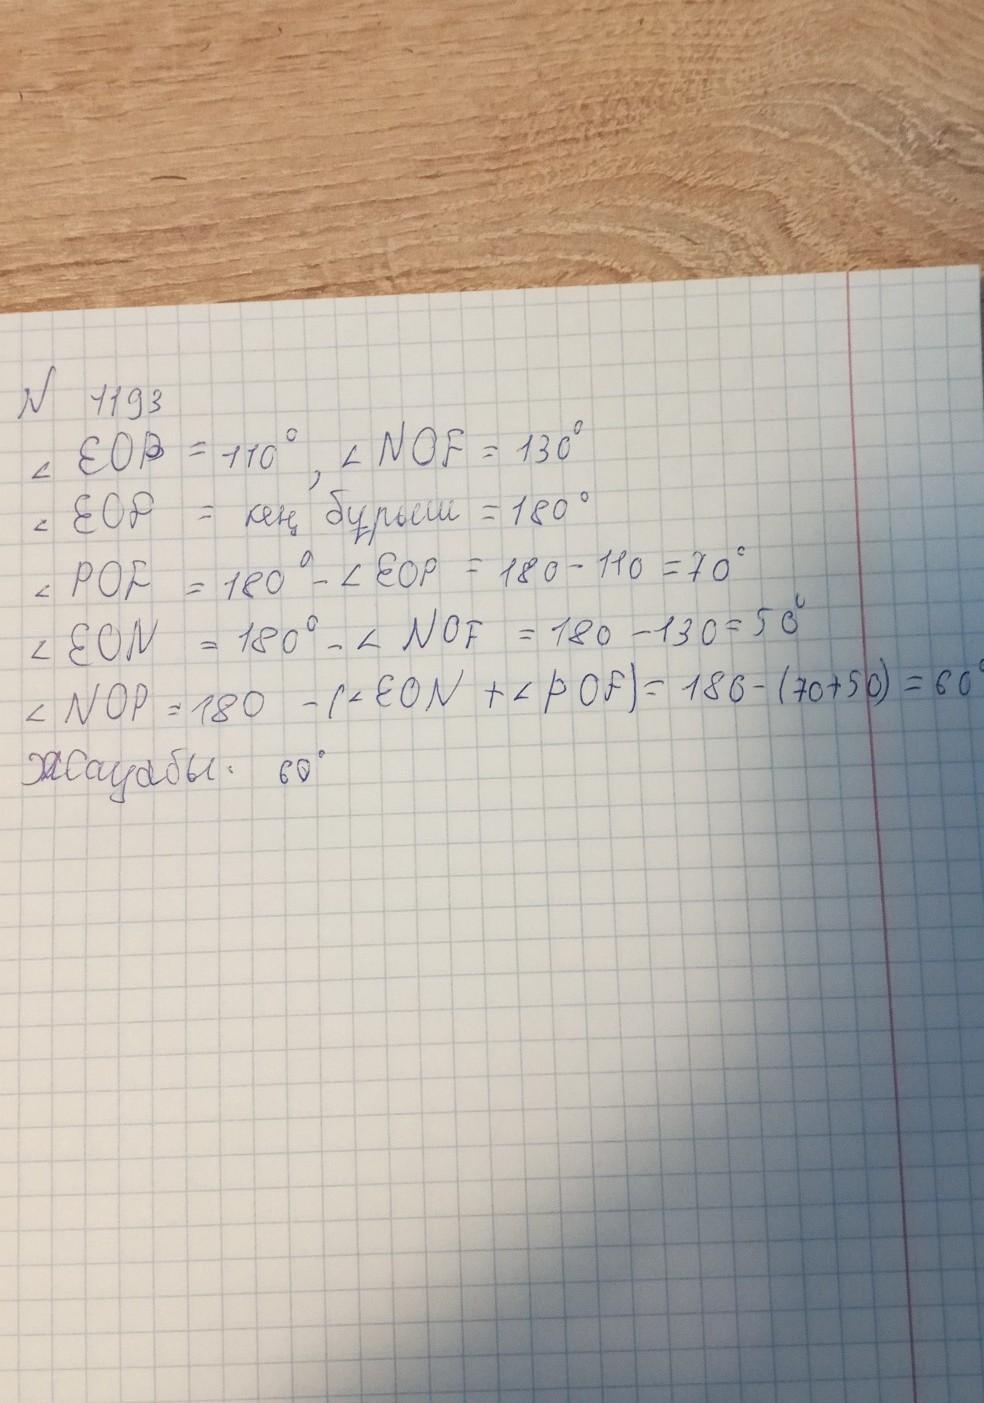 N 1193
∠ EOP = 110°, ∠ NOF = 130°
∠ EOF = кең бұрыш = 180°
∠ POF = 180° - ∠ EOP = 180 - 110 = 70°
∠ EON = 180° - ∠ NOF = 180 - 130 = 50°
∠ NOP = 180 - (∠ EON + ∠ POF) = 180 - (70+50) = 60°
Жауабы: 60°